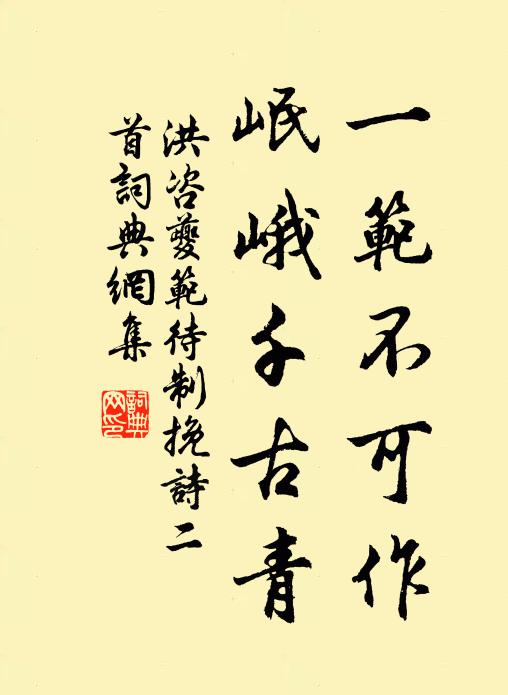 一範不可作
岷峨千古青
洪咨夔範待制挽詩二
首詞典網集
詞典
网印